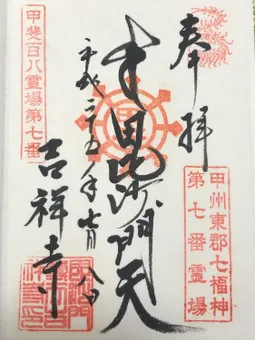 奉拝
甲州東郡七福神
第七番霊場
本毘沙門天
平成二十五年七月八日
甲斐百八霊場第七番
吉祥寺